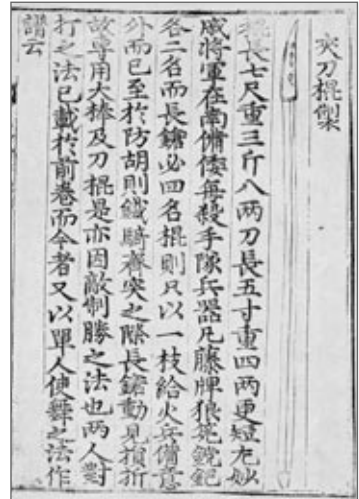 夾刀棍製
棍長七尺重三斤八兩刀長五寸重四兩更短尤妙
戚將軍在南備倭每殺手隊兵器凡藤牌狼筅鋭鈀
各二名而長鎗必四名棍則只以一枝給火兵備意
外而已至於防胡則鐵騎齊突之際長鎗動見摧折
故專用大棒及刀棍是亦因敵制勝之法也兩人對
打之法已載於前卷而今者又以單人使舞之法作
譜云